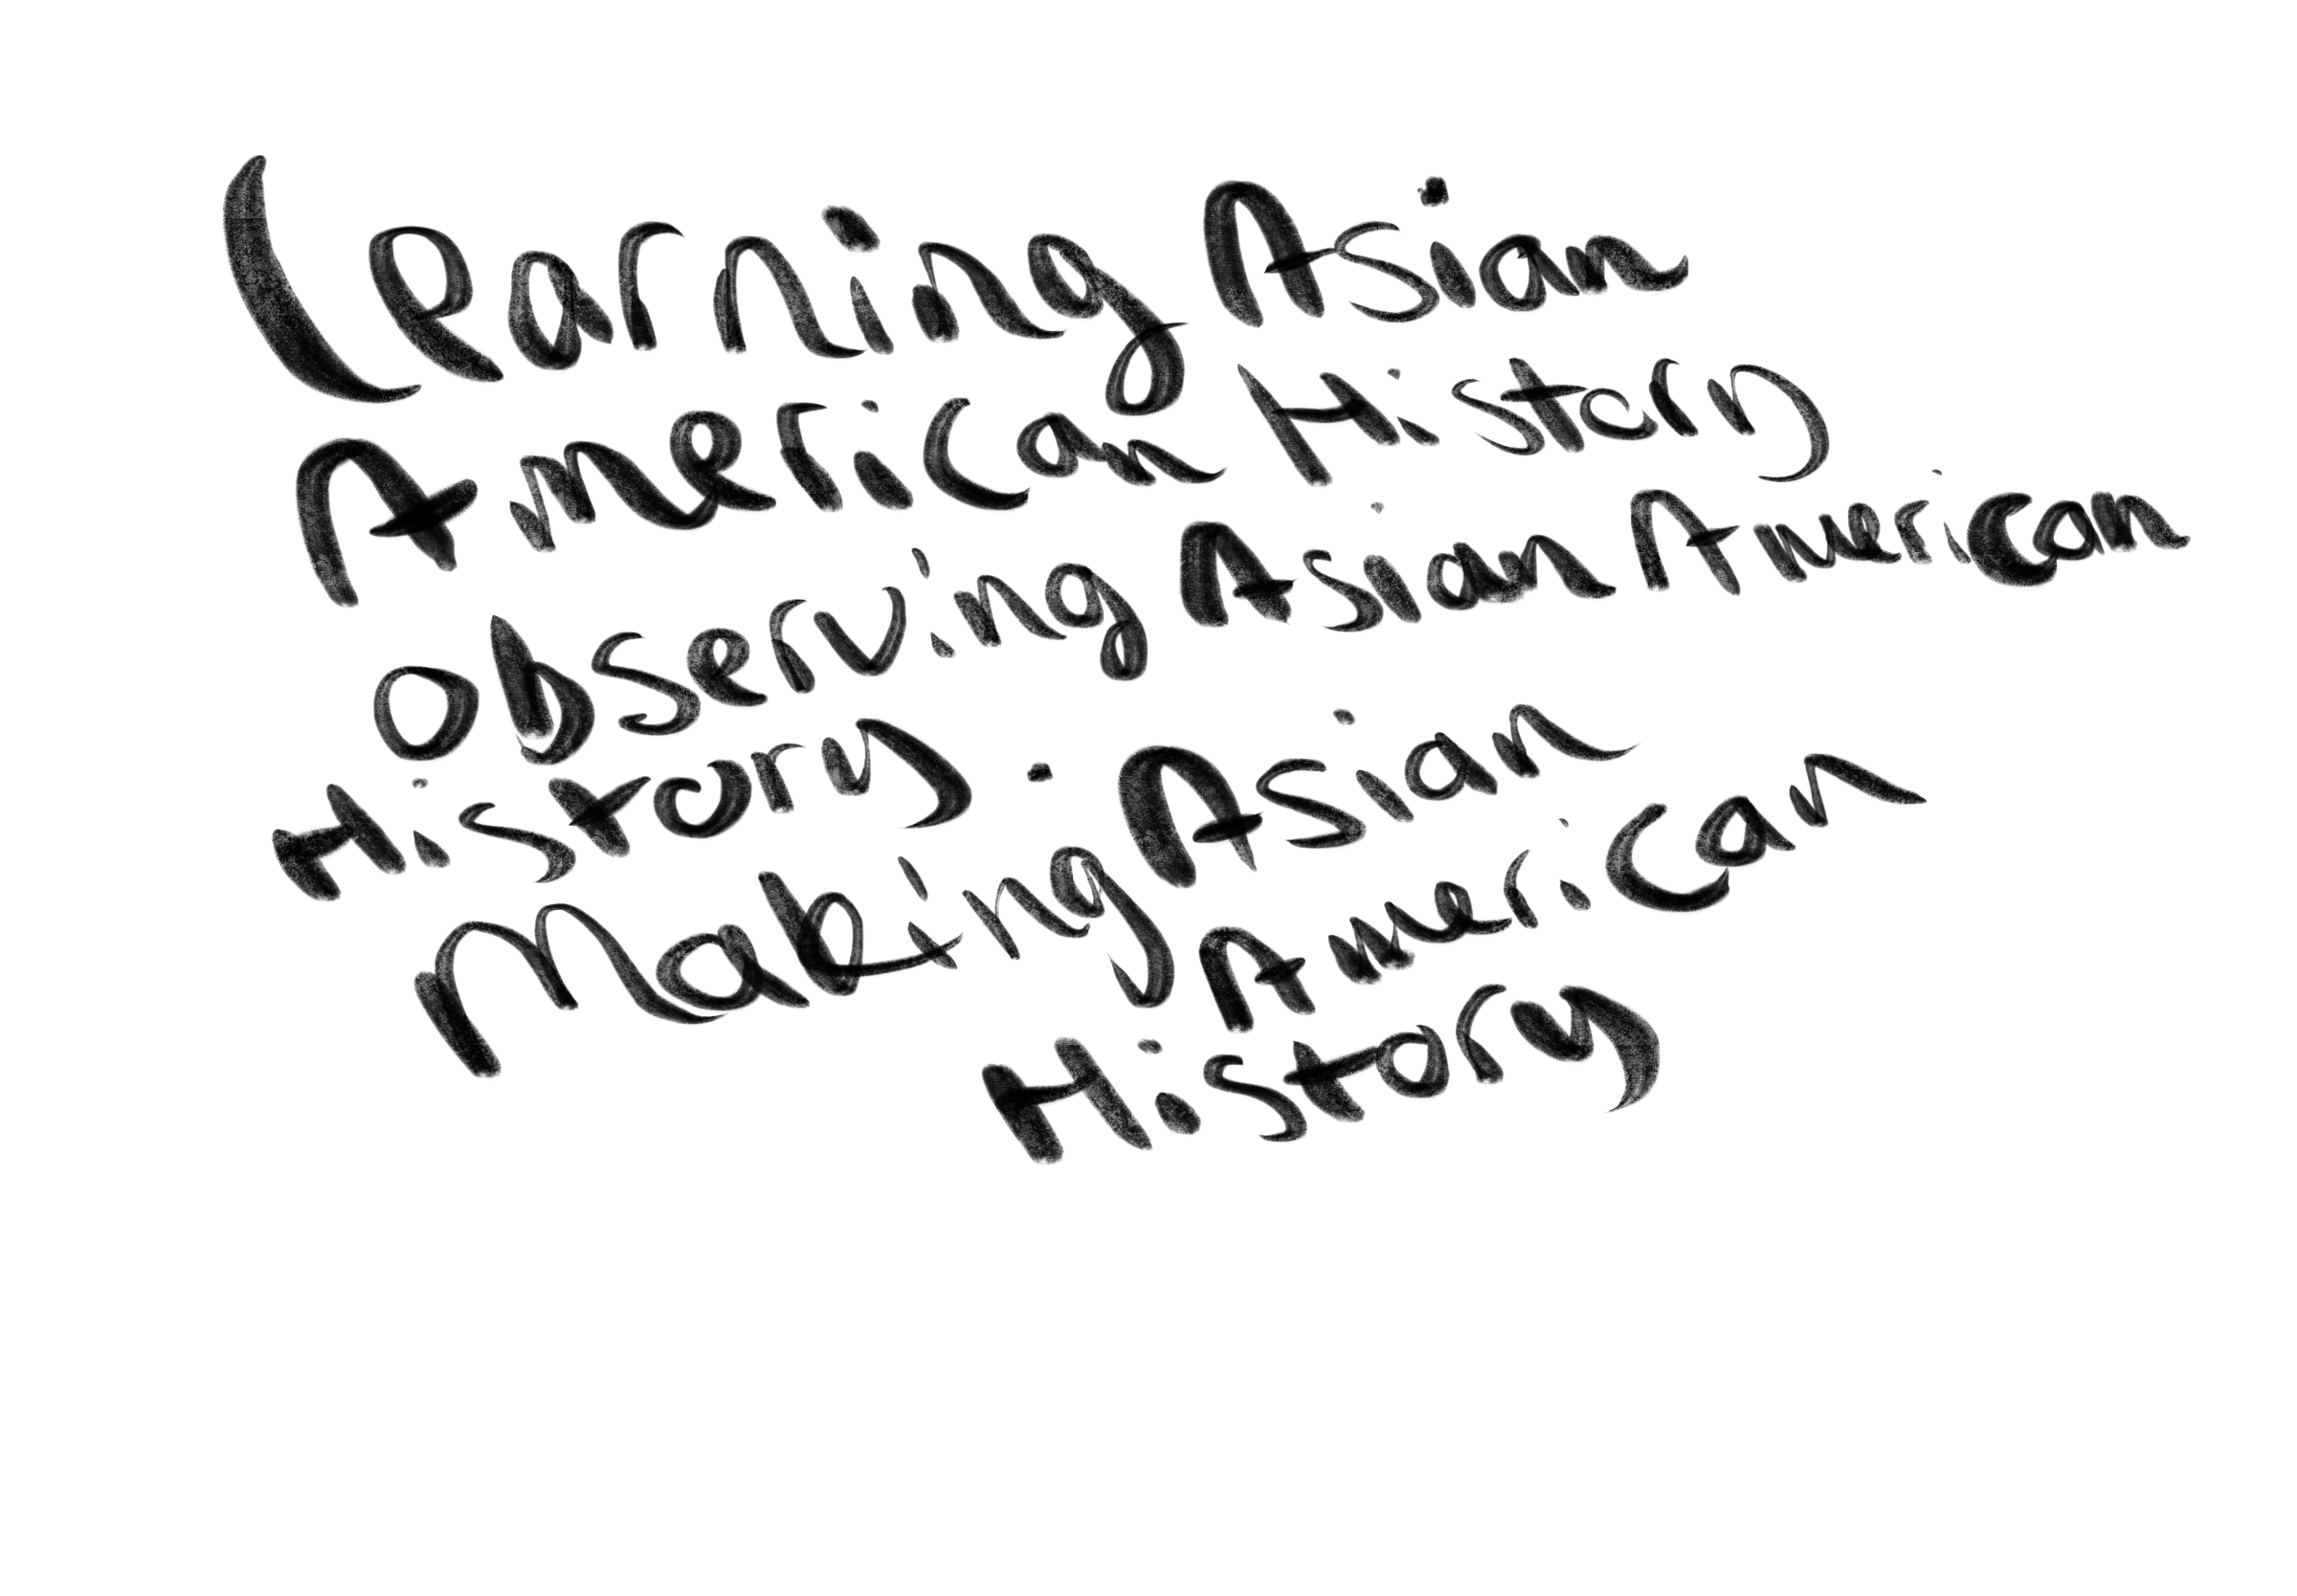 Learning Asian
American History
Observing Asian American
History.
Making Asian
American
History